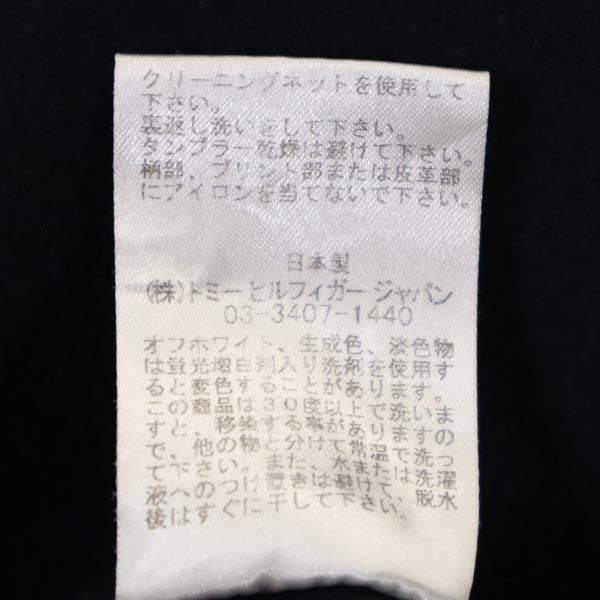 クリーニングネットを使用して
下さい。
裏返し洗いをして下さい。
タンブラー乾燥は避けて下さい。
柄部、プリント部または皮革部
にアイロンを当てないで下さい。
日本製
(株)トミーヒルフィガージャパン
03-3407-1440
オフホワイト、生成色、淡色物
は蛍光増白剤入り洗剤を使用す
ると変色することがあります。
この商品は30度以上で洗いま
すと、移染する事がありますの
で、他の物と分けて常温で洗っ
て下さい。また、水または洗濯
液へのつけ置きは避けて、脱水
後はすぐに干して下さい。